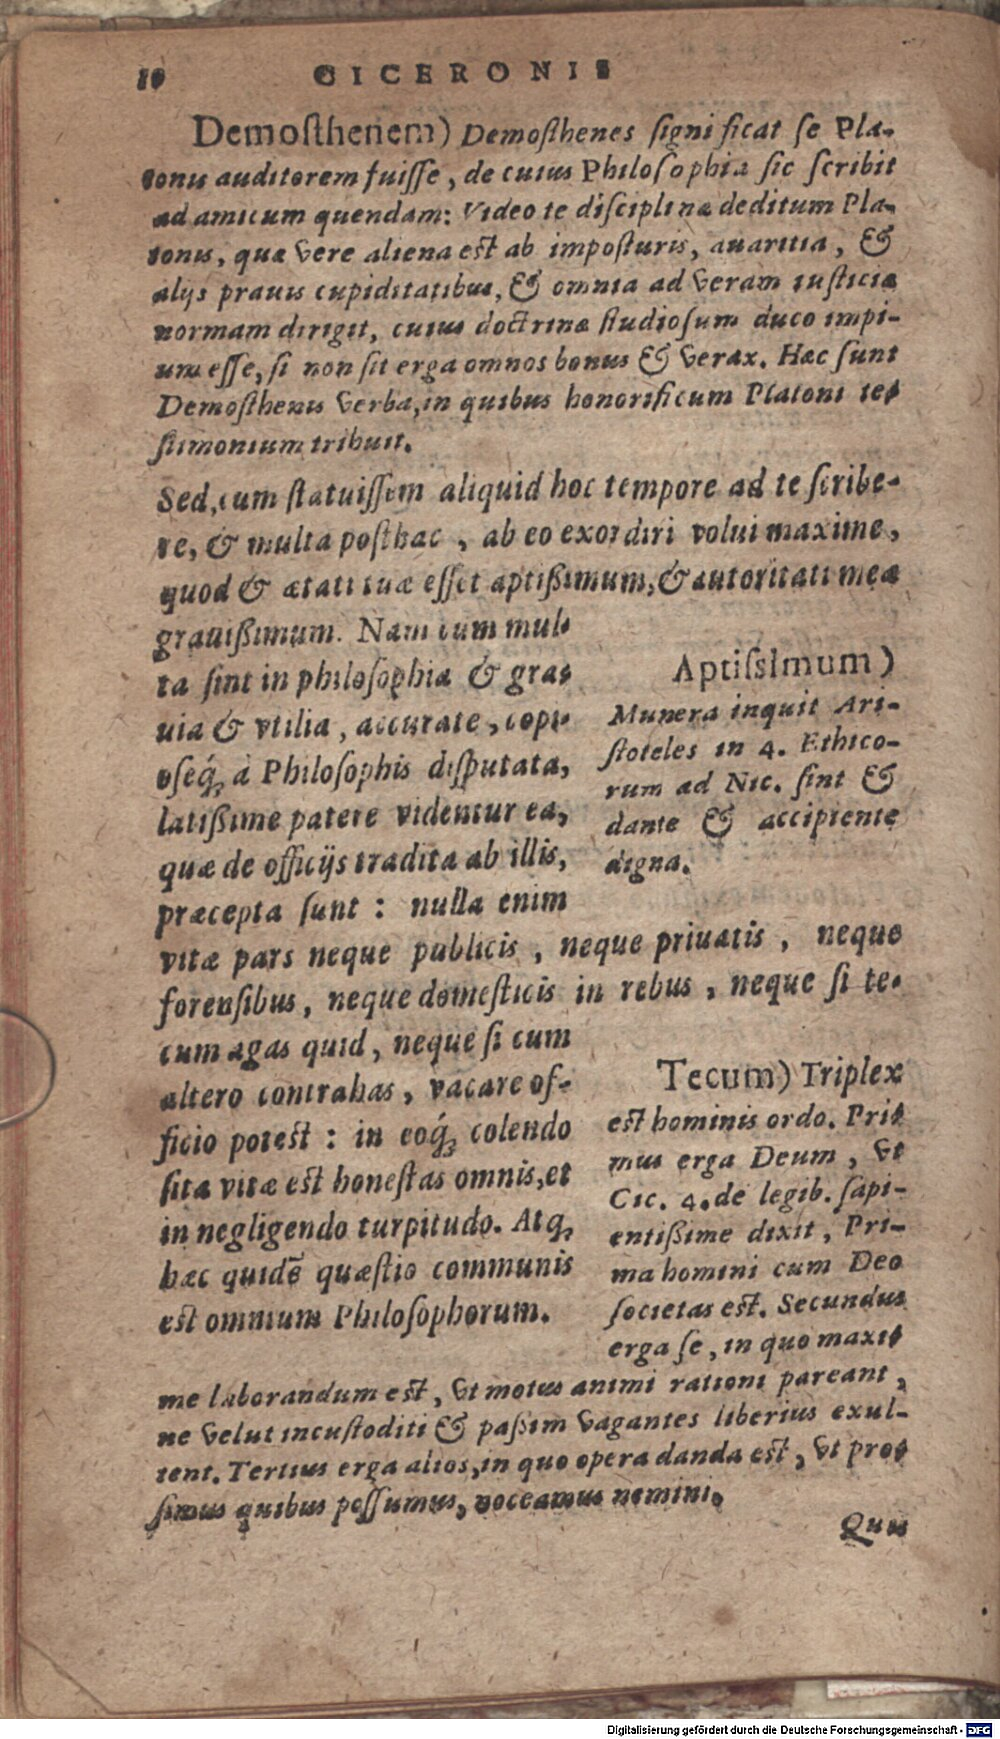 10 CICERONIS
Demosthenem) Demosthenes significat se Pla-
tonis auditorem fuisse, de cuius Philosophia sic scribit
ad amicum quendam: Video te disciplinæ deditum Pla-
tonis, quæ vere aliena est ab imposturis, auaritia, &
alijs prauis cupiditatibus, & omnia ad veram iusticiæ
normam dirigit, cuius doctrinæ studiosum duco impi-
um esse, si non sit erga omnos bonus & verax. Hæc sunt
Demosthenis verba, in quibus honorificum Platoni te-
stimonium tribuit.
Sed, cum statuissem aliquid hoc tempore ad te scribe-
re, & multa posthac, ab eo exordiri volui maxime,
quod & ætati tuæ esset aptißimum, & autoritati meæ
grauißimum. Nam cum mul-
ta sint in philosophia & gra-
uia & vtilia, accurate, copi-
oseq́ꝫ à Philosophis disputata,
latißime patere videntur ea,
quæ de officijs tradita ab illis,
præcepta sunt: nulla enim
Aptissimum)
Munera inquit Ari-
stoteles in 4. Ethico-
rum ad Nic. sint &
dante & accipiente
digna.
vitæ pars neque publicis, neque priuatis, neque
forensibus, neque domesticis in rebus, neque si te-
cum agas quid, neque si cum
altero contrahas, vacare of-
ficio potest: in eoq́ꝫ colendo
sita vitæ est honestas omnis, et
in negligendo turpitudo. Atqꝫ
hæc quidē quæstio communis
est omnium Philosophorum.
Tecum) Triplex
est hominis ordo. Pri-
mus erga Deum, vt
Cic. 4. de legib. sapi-
entißime dixit, Pri-
ma homini cum Deo
societas est. Secundus
erga se, in quo maxi-
me laborandum est, vt motus animi rationi pareant,
ne velut incustoditi & paßim vagantes liberius exul-
tent. Tertius erga alios, in quo opera danda est, vt pro-
simus quibus possumus, noceamus nemini.
Quis
Digitalisierung gefördert durch die Deutsche Forschungsgemeinschaft - DFG